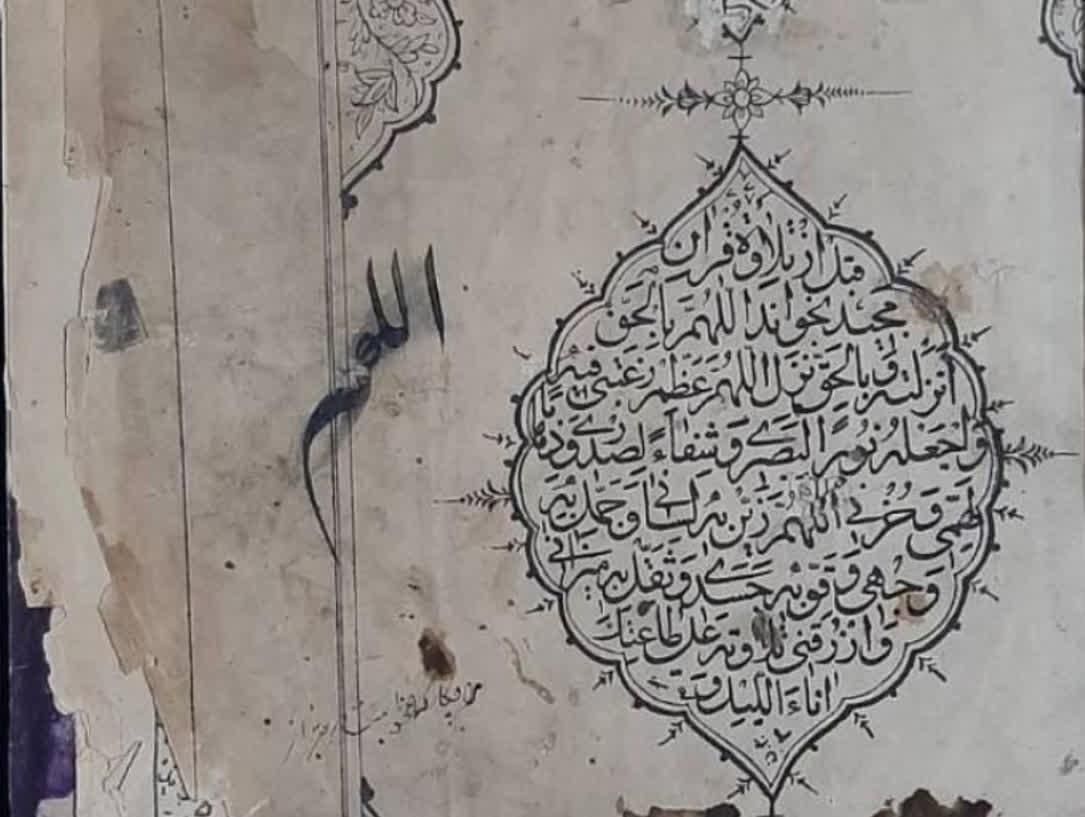 قبل از تلاوة قران
مجید بخواند اللهم بالحق
انزلته و بالحق نزل اللهم عظم رغبتی فیه
واجعله نورا لبصری وشفاء لصدری وذهابا
لهمی وحزنی اللهم زین به لسانی وجمل به
وجهی وقو به جسدی وثقل به میزانی
وارزقنی تلاوته علی طاعتک
اناء اللیل و